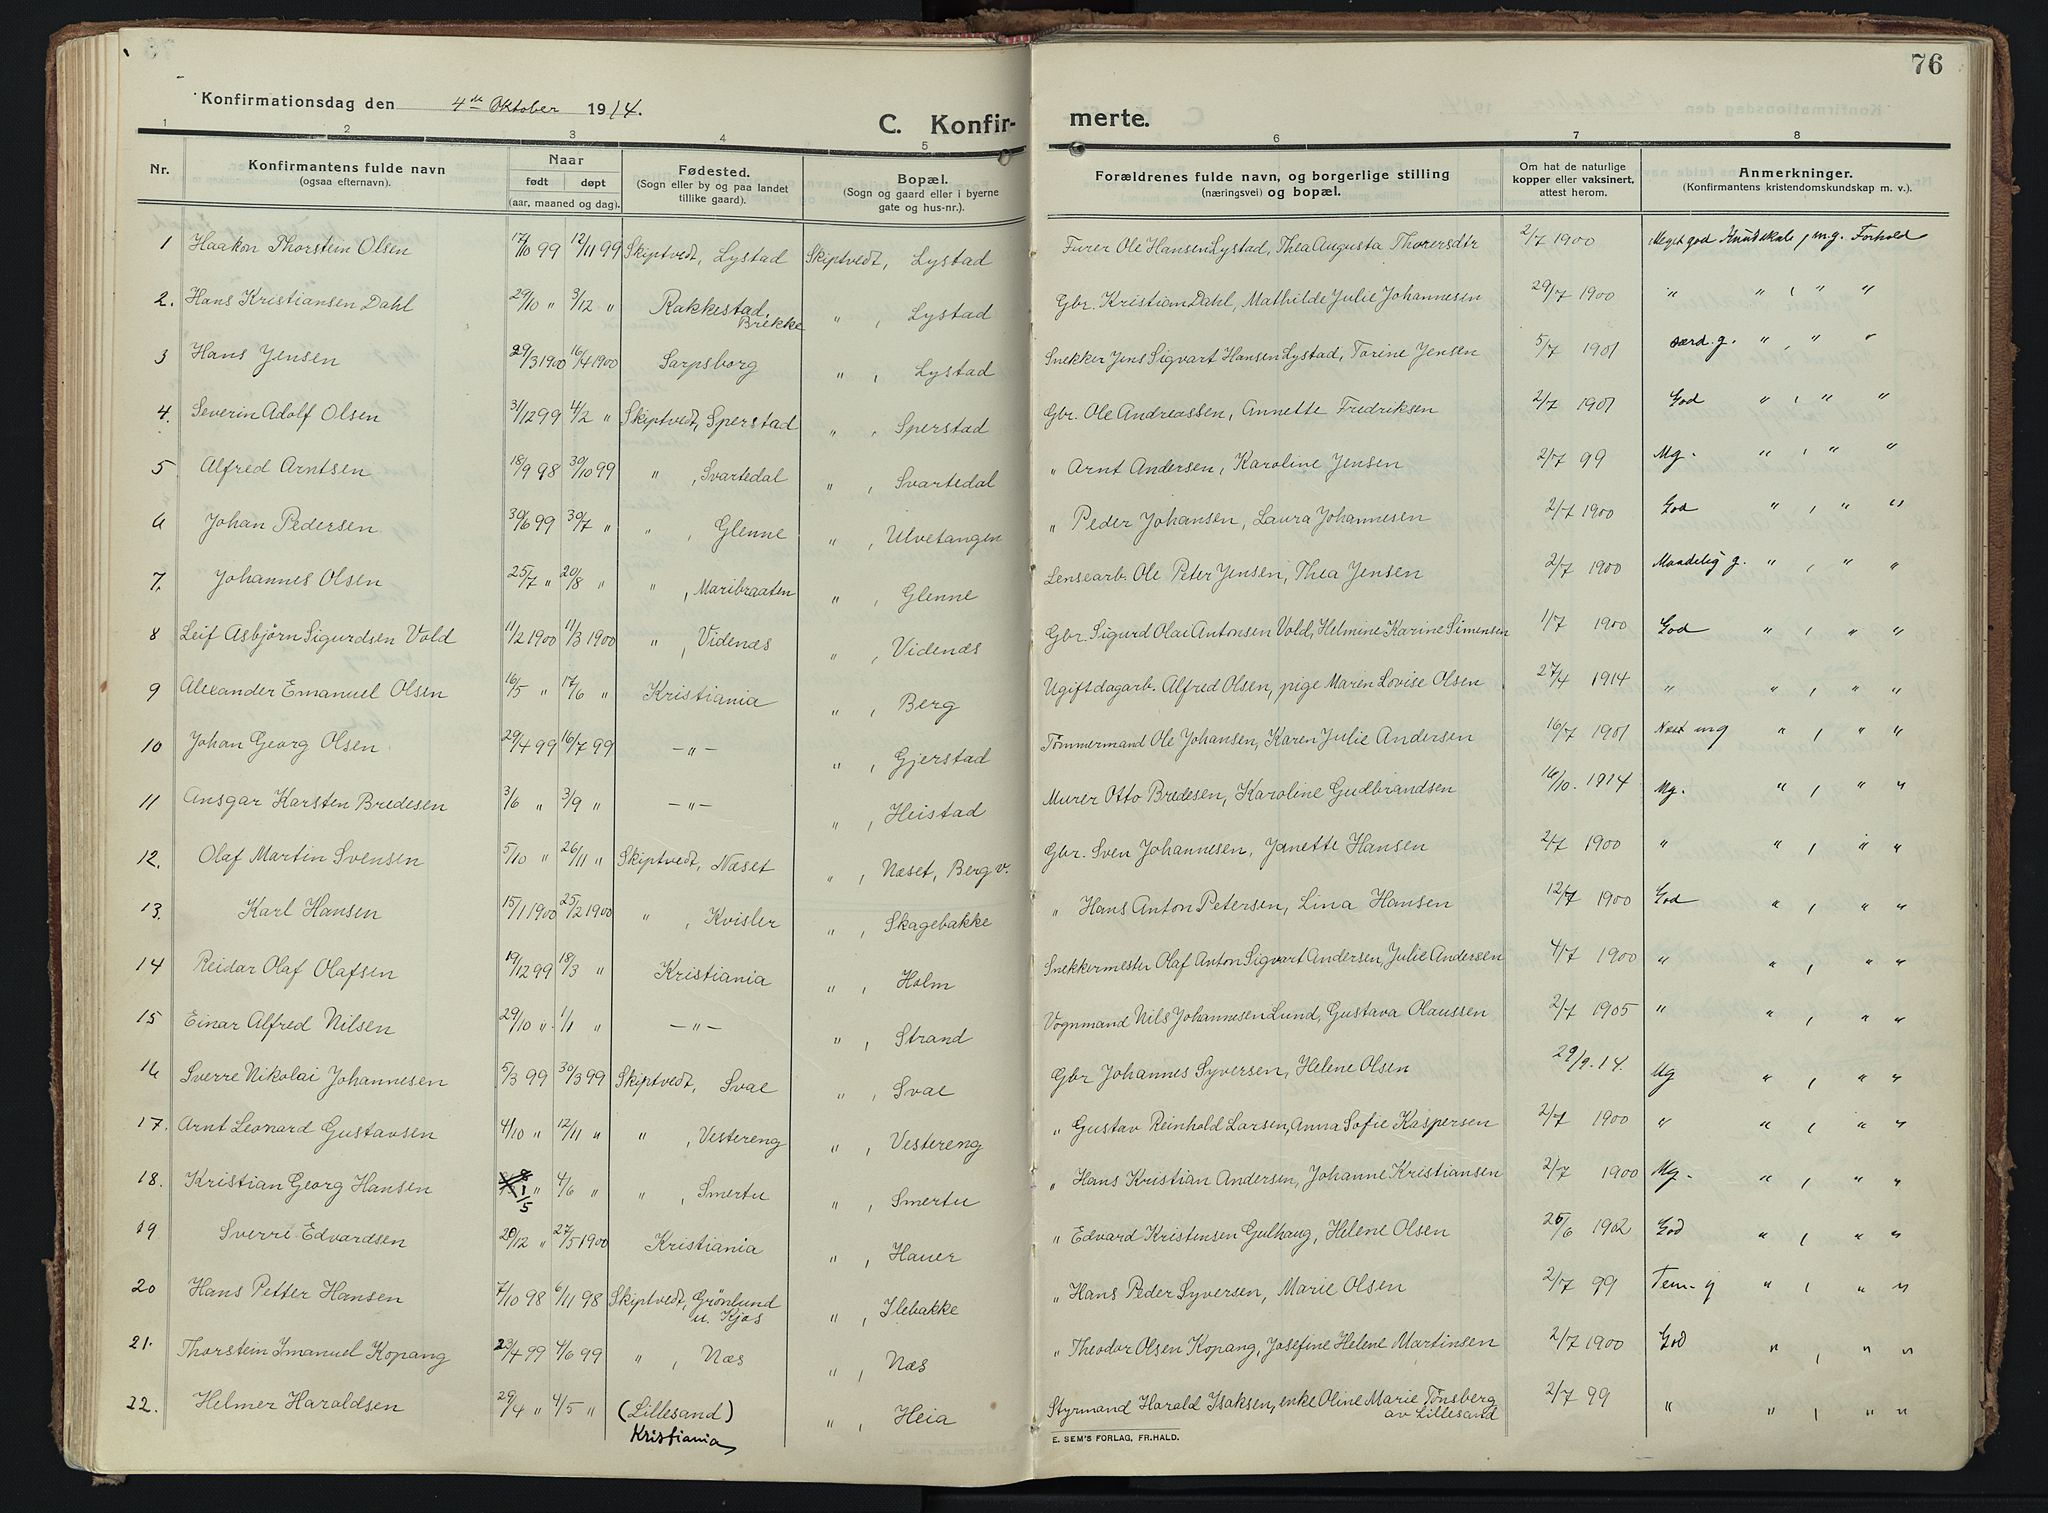 76
Konfirmationsdag den 4de Oktober 1914.
C. Konfir- merte.
1 2 3 4 5 6 7 8
Nr. Konfirmantens fulde navn (ogsaa efternavn). Naar født døpt (aar, maaned og dag). Fødested. (Sogn eller by og paa landet tillike gaard). Bopæl. (Sogn og gaard eller i byerne gate og hus-nr.). Forældrenes fulde navn, og borgerlige stilling (næringsvei) og bopæl. Om hat de naturlige kopper eller vaksinert, attest herom. Anmerkninger. (Konfirmantens kristendomskundskap m. v.).
1 Haakon Thorstein Olsen 17/10 99 12/11 99 Skiptvedt, Lystad Skiptvedt, Lystad Furer Ole Hansen Lystad, Thea Augusta Thorersdtr 2/7 1900 Meget god Kundskab, m.g. Forhold
2. Hans Kristiansen Dahl 29/10 " 3/12 " Rakkestad, Brekke " , Lystad Gbr. Kristian Dahl, Mathilde Julie Johannesen 29/7 1900 " " , " "
3 Hans Jensen 29/3 1900 16/4 1900 Sarpsborg " , Lystad Snekker Jens Sigvart Hansen Lystad, Torine Jensen 5/7 1901 særd. g. " , " "
4. Severin Adolf Olsen 31/12 99 4/2 " Skiptvedt, Sperstad " , Sperstad Gbr. Ole Andreassen, Annette Fredriksen 2/7 1901 God " , " "
5 Alfred Arntsen 18/9 98 30/10 99 " , Svartedal " , Svartedal " Arnt Andersen, Karoline Jensen 2/7 99 Mg. " , " "
6 Johan Pedersen 30/6 99 30/7 " " , Glenne " , Ulvetangen " Peder Johansen, Laura Johannesen 2/7 1900 God " , " "
7. Johannes Olsen 25/7 " 20/8 " " , Maribraaten " , Glenne Lensearb. Ole Peter Jensen, Thea Jensen 2/7 1900 Maadelig g. " , " "
8 Leif Asbjörn Sigurdsen Vold 11/2 1900 11/3 1900 " , Videnæs " , Videnæs Gbr. Sigurd Olai Antonsen Vold, Helmine Karine Simensen 1/7 1900 God " , " "
9 Alexander Emanuel Olsen 16/5 " 17/6 " Kristiania " , Berg Ugift dagarb. Alfred Olsen, pige Maren Lovise Olsen 27/4 1914 " " , " "
10 Johan Georg Olsen 29/4 99 16/7 99 — " — " , Gjerstad Tømmermand Ole Johansen, Karen Julie Andersen 16/7 1901 Næst mg " , " "
11 Ansgar Karsten Bredesen 3/6 " 3/9 " — " — " , Heistad Murer Otto Bredesen, Karoline Gudbrandsen 16/10. 1914 Mg. " , " "
12. Olaf Martin Svensen 5/10 " 26/11 " Skiptvedt, Næset " , Næset, Berg v. Gbr. Sven Johannesen, Janette Hansen 2/7 1900 " " , " "
13. Karl Hansen 15/1 1900 25/2 1900 " , Kvisler " , Skagebakke " Hans Anton Petersen, Lina Hansen 12/7 1900 God " , " "
14 Reidar Olaf Olafsen 19/12 99 18/3 " Kristiania " , Holm Snekkermester Olaf Anton Sigvart Andersen, Julie Andersen 4/7 1900 " " , " "
15 Einar Alfred Nilsen 29/10 " 1/1 " — " — " , Strand Vognmand Nils Johannesen Lund, Gustava Olaussen 2/7 1905 " " , " "
16 Sverre Nikolai Johannesen 5/3 99 30/3 99 Skiptvedt, Svae " , Svae Gbr Johannes Syversen, Helene Olsen 29/9. 14. Mg " , " "
17. Arnt Leonard Gustavsen 4/10 " 12/11 " " , Vestereng " , Vestereng " Gustav Reinhold Larsen, Anna Sofie Kaspersen 2/7 1900 " " , " "
18. Kristian Georg Hansen 1/5 " 4/6 " " , Smertu " , Smertu " Hans Kristian Andersen, Johanne Kristiansen 2/7 1900 Mg. " , " "
19 Sverre Edvardsen 20/12 " 27/5 1900 Kristiania " , Hauer " Edvard Kristensen Gulhaug, Helene Olsen 25/6 1902 God " , " "
20 Hans Petter Hansen 7/10 98 6/11 98 Skiptvedt, Grönlund u. Kjos " , Ilebakke " Hans Peder Syversen, Marie Olsen 2/7 99 Tem- g " , " "
21. Thorstein Imanuel Kopang 23/4 99 4/6 99 " , Næs " , Næs " Theodor Olsen Kopang, Josefine Helene Martinsen 2/7 1900 God " , " "
22. Helmer Haraldsen 29/4 " 4/5 " (Lillesand) Kristiania " , Heia Styrmand Harald Isaksen, enke Oline Marie Tønsberg av Lillesand 2/7 99 " " , " "
E. SEM'S FORLAG, FR.HALD.